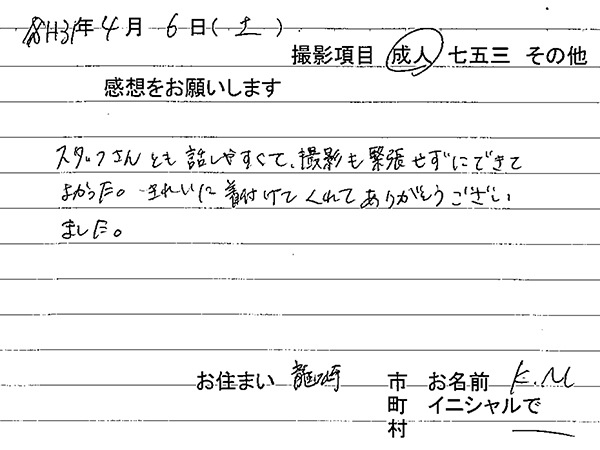 H31年4月6日(土)
撮影項目 成人 七五三 その他
感想をお願いします
スタッフさんとも話しやすくて、撮影も緊張せずにできて
よかった。きれいに着付けてくれてありがとうござい
ました。
お住まい 龍ケ崎 市 お名前 K.M
町 イニシャルで
村